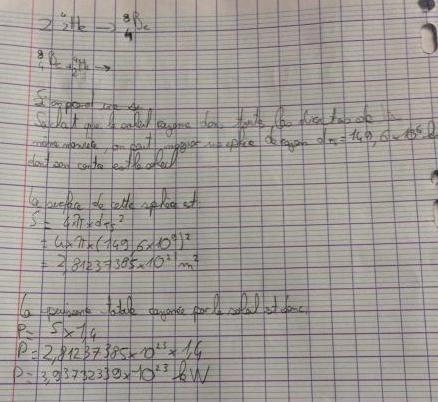 2 ⁴₂He → ⁸₄Be
⁸₄Be + ⁴₂He →
Sachant que le soleil rayonne dans toutes les directions de la
même manière, on peut imaginer une sphère de rayon d = 149,6 × 10⁶
dont son centre est le soleil
La surface de cette sphère est:
S = 4π × d²
= 4 × π × (149,6 × 10⁹)²
= 2,81237385 × 10²³ m²
La puissance totale rayonnée par le soleil est donc
P = S × 1,4
P = 2,81237385 × 10²³ × 1,4
P = 3,93732339 × 10²³ kW